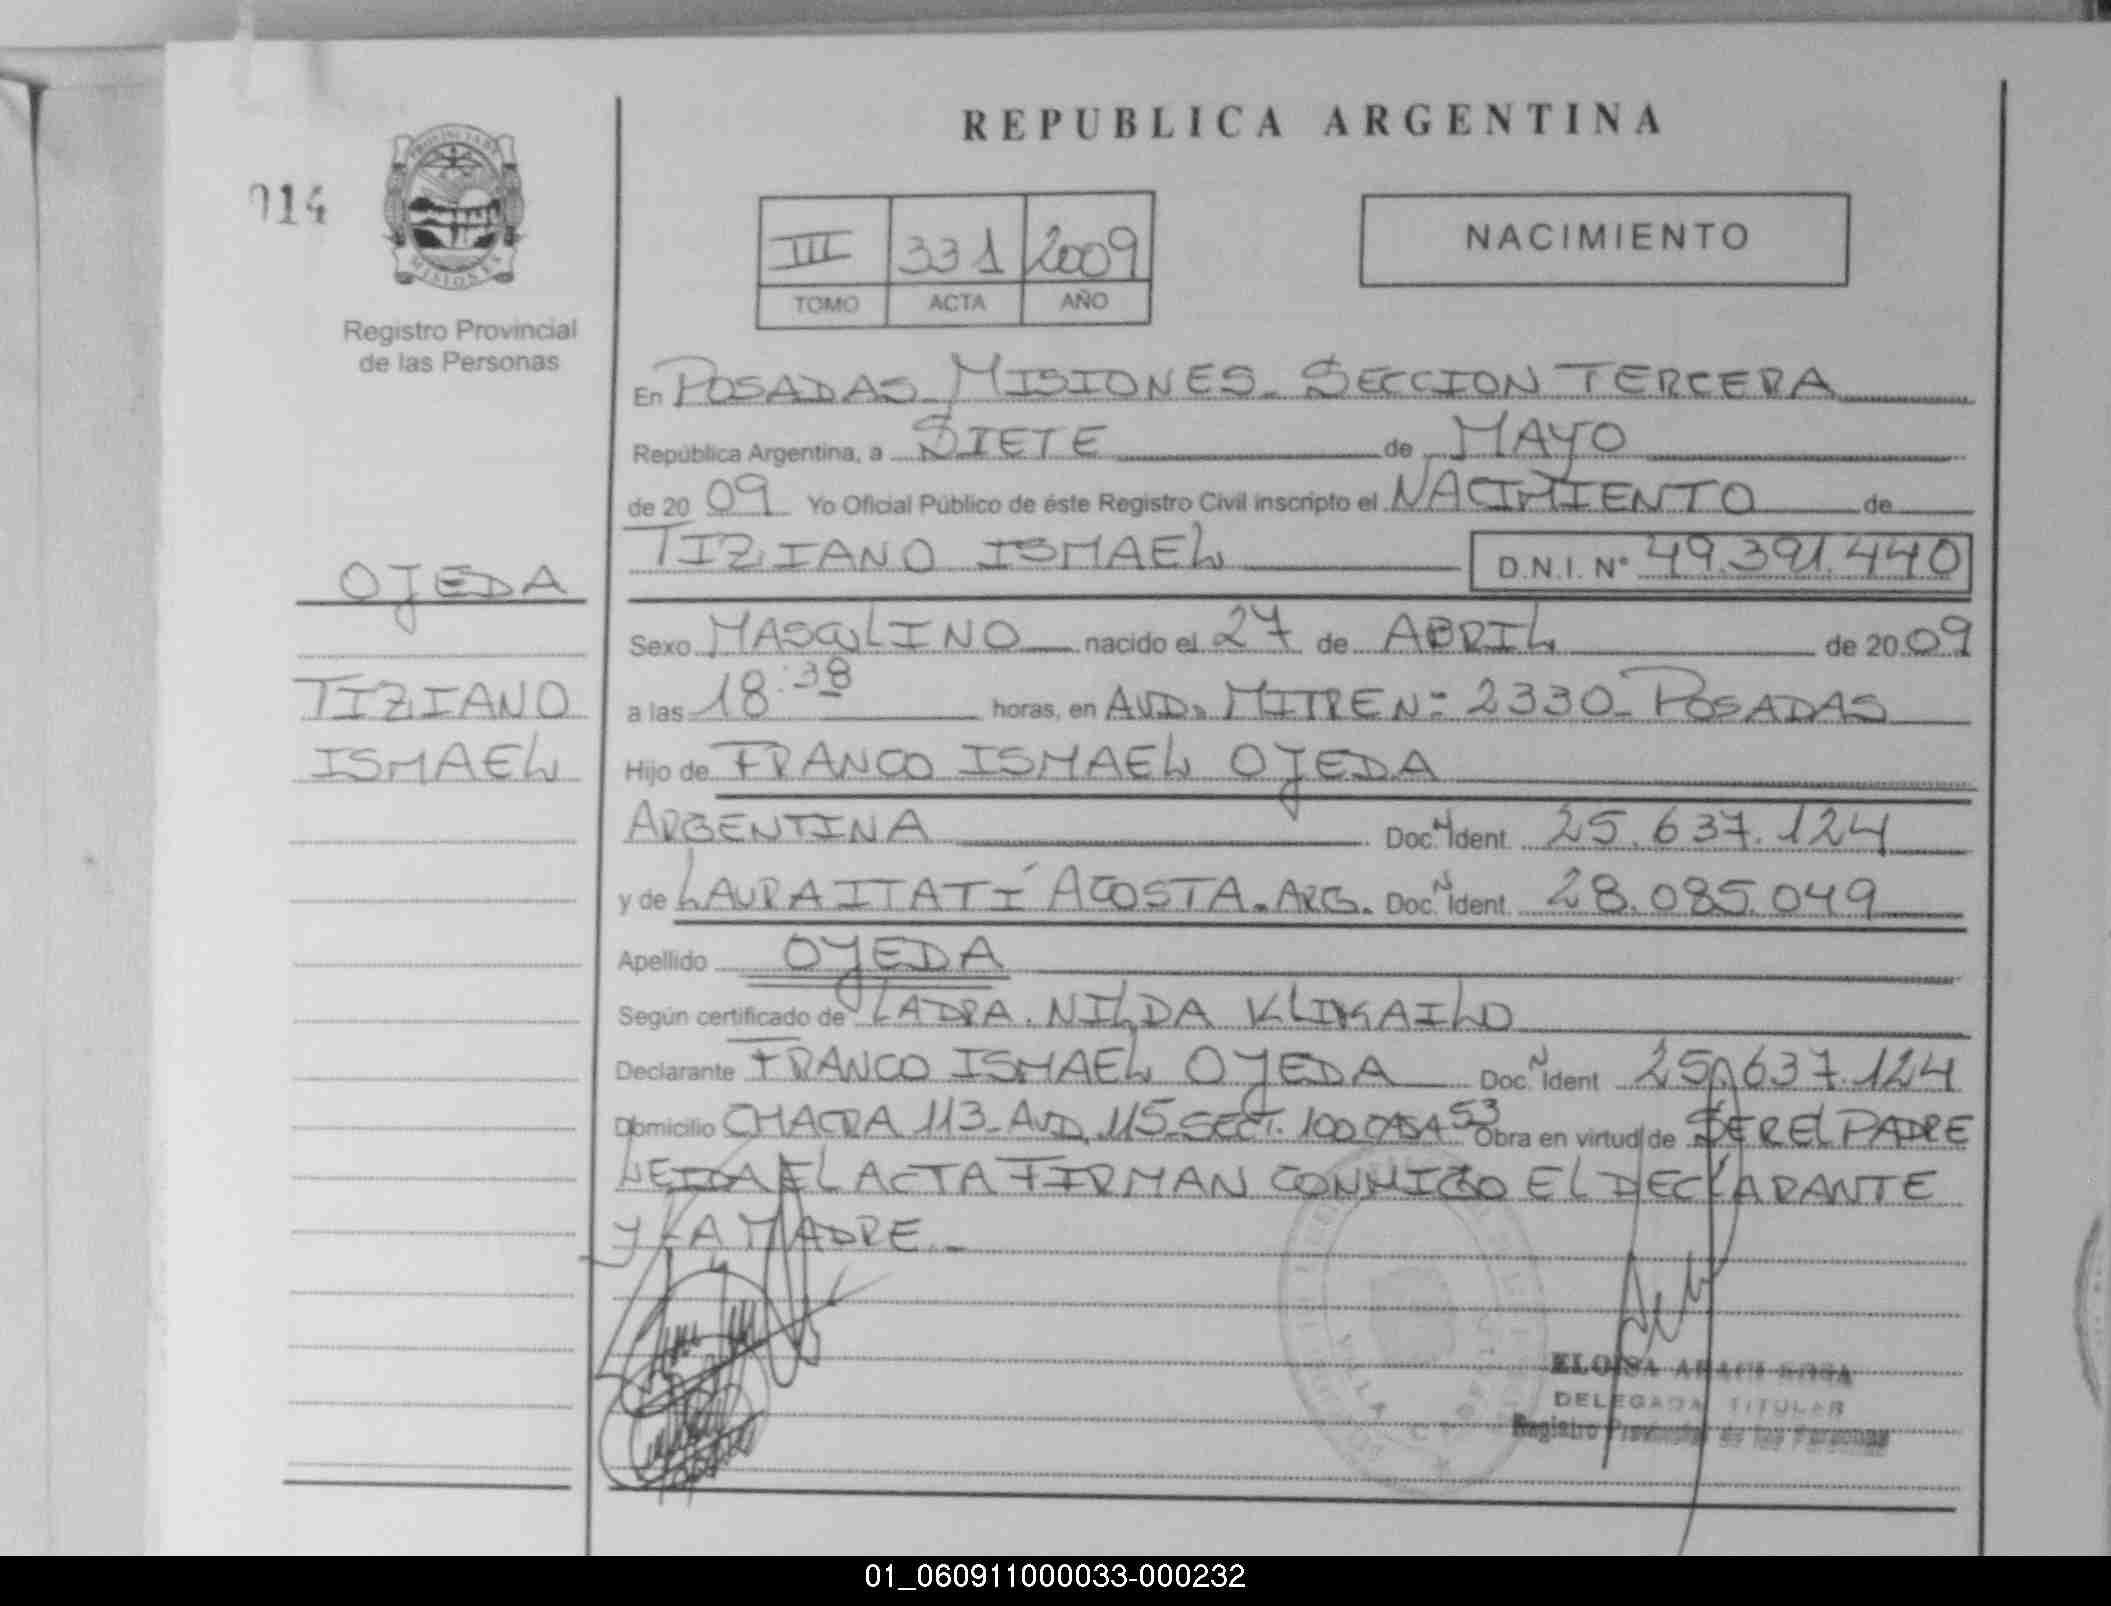 REPUBLICA ARGENTINA
014
PROVINCIA DE
MISIONES
Registro Provincial
de las Personas
III 331 2009
TOMO ACTA AÑO
NACIMIENTO
En POSADAS MISIONES. SECCION TERCERA
República Argentina, a SIETE de MAYO
de 20 09 Yo Oficial Público de éste Registro Civil inscripto el NACIMIENTO de
TIZIANO ISMAEL D.N.I. Nº 49.391.440
OJEDA
TIZIANO
ISMAEL
Sexo MASCULINO nacido el 27 de ABRIL de 20 09
a las 18:38 horas, en AVD. MITRE Nº 2330 - POSADAS
Hijo de FRANCO ISMAEL OJEDA
ARGENTINA Doc. N Ident. 25.637.124
y de LAURA ITATÍ ACOSTA. ARG. Doc. N Ident. 28.085.049
Apellido OJEDA
Según certificado de LA DRA. NILDA
Declarante FRANCO ISMAEL OJEDA Doc. N Ident 25.637.124
Domicilio CHACRA 113 - AVD. 115 - SECT. 100 CASA 53 Obra en virtud de SER EL PADRE
LEIDA EL ACTA FIRMAN CONMIGO EL DECLARANTE
Y LA MADRE.-
ELOISA
DELEGADA TITULAR
Registro Provincial de las Personas
01_060911000033-000232